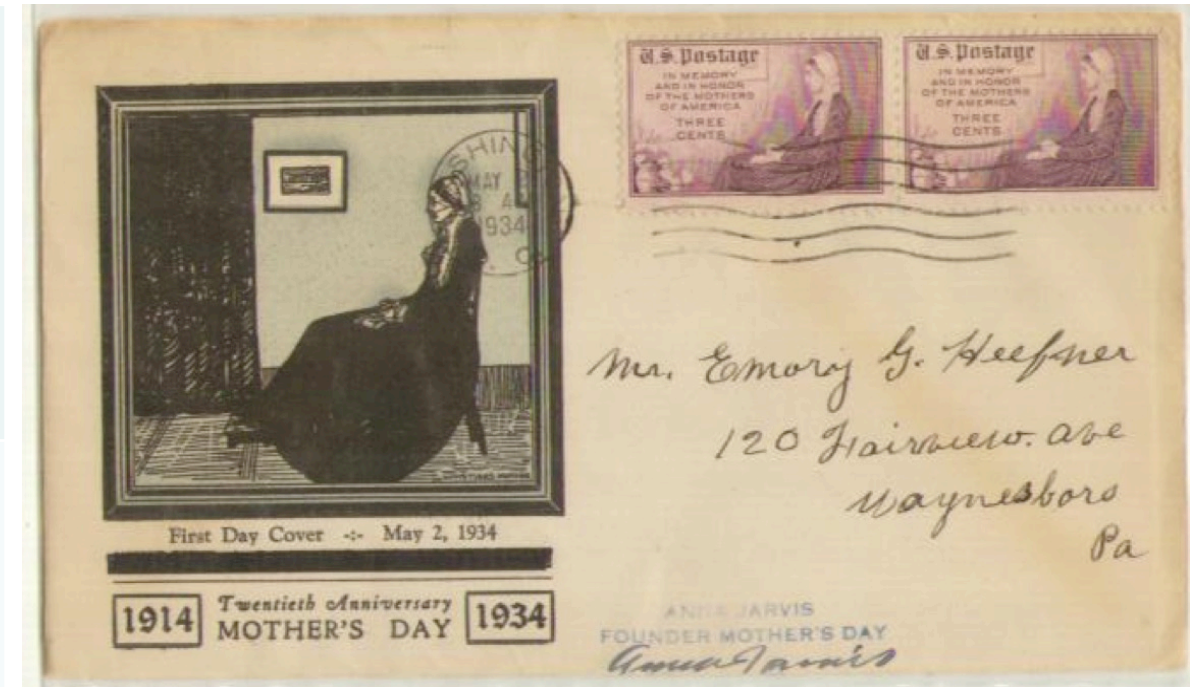 U.S. Postage
IN MEMORY
AND IN HONOR
OF THE MOTHERS
OF AMERICA
THREE
CENTS
U.S. Postage
IN MEMORY
AND IN HONOR
OF THE MOTHERS
OF AMERICA
THREE
CENTS
SHIN
MAY
8 A
1934
Mr. Emory G. Heefner
120 Fairview. Ave
Waynesboro
Pa
First Day Cover -:- May 2, 1934
1914 Twentieth Anniversary 1934
MOTHER'S DAY
ANNA JARVIS
FOUNDER MOTHER'S DAY
Anna Jarvis